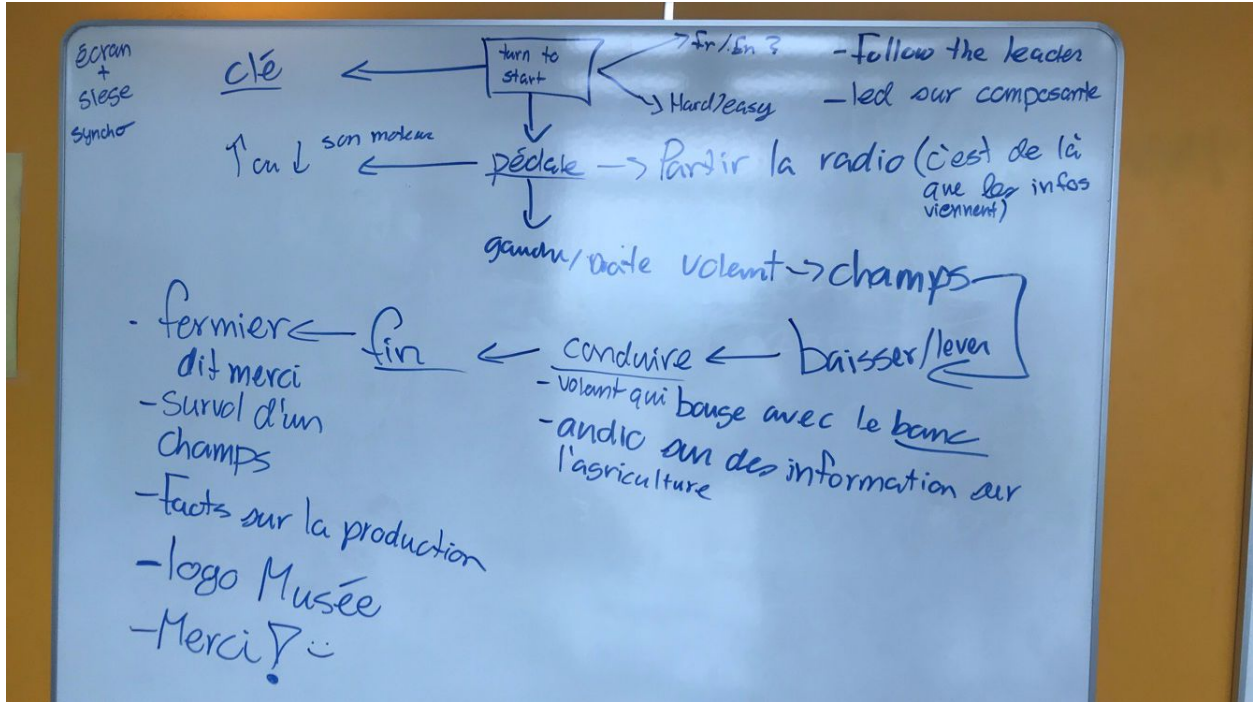 écran
+
siege
synchro
clé
turn to
start
fr/.En ?
Hard/easy
- Follow the leader
- led sur composante
↑ou↓ son moteur
pédale → Partir la radio (c'est de là
que les infos
viennent)
gauche/droite volant → champs
baisser/lever
conduire
- volant qui bouge avec le banc
- audio sur des information sur
l'agriculture
fin
- fermier
dit merci
- Survol d'un
Champs
- Facts sur la production
- logo Musée
- Merci !